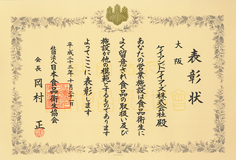 表彰状
大阪
ケイアンドケイアイズ株式会社殿
あなたの営業施設は食品衛生に
よく留意され食品の取扱い及び
施設が他の模範とするものであります
よってここに表彰します
平成二十三年十月二十一日
社団法人日本食品衛生協会
会長 岡村 正